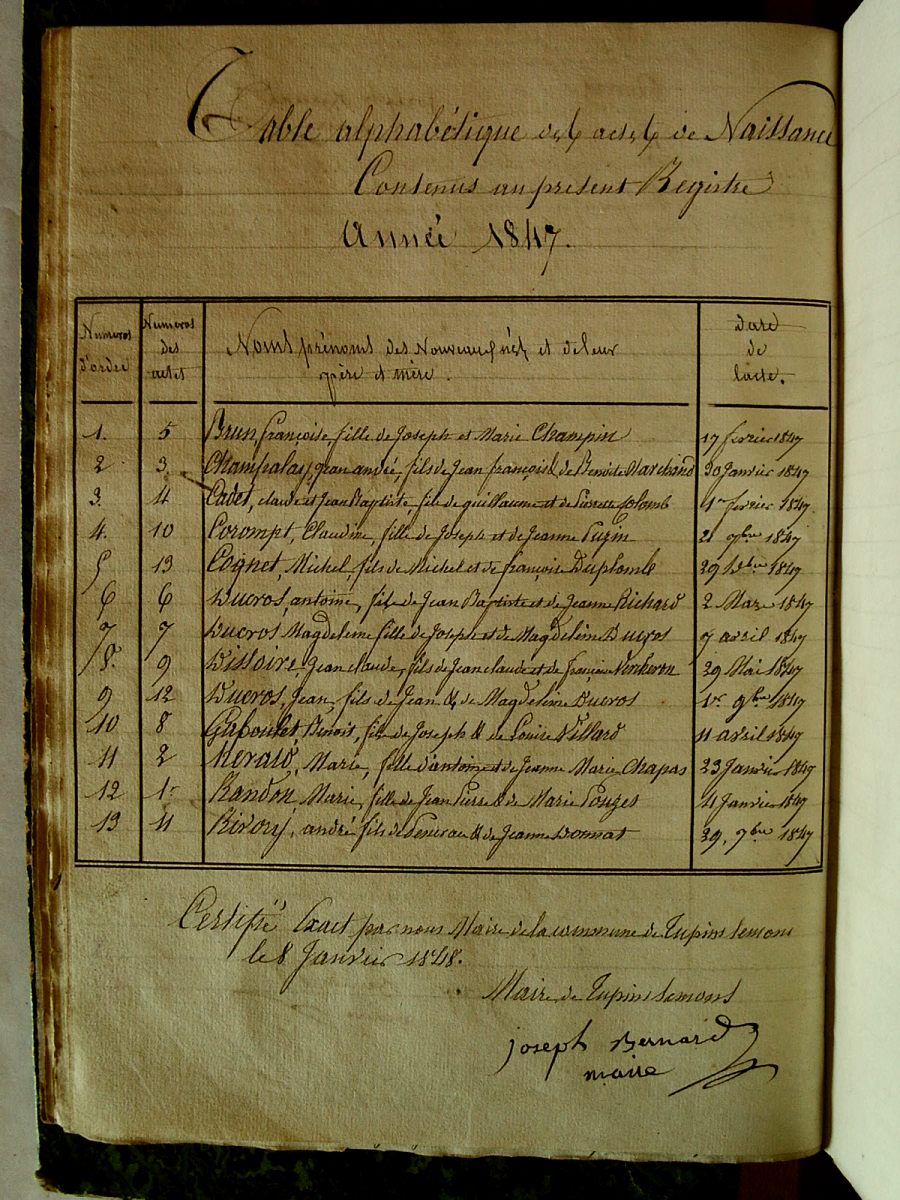 Table alphabétique des actes de Naissance
Contenus au present Registre
Année 1847.
Numeros d'ordre
Numeros des actes
Noms prénoms des Nouveaux nés et de leur
père et mère.
date de l'acte.
1. 5 Brun françoise, fille de Joseph et Marie Champin 17 fevrier 1847
2 3. Champalay, jean andré, fils de Jean françois & de Benoite Marchand 30 Janvier 1847
3. 4 Cadet, claude et Jean Baptiste, fils de guillaume et de Pierrette Colomb 1er fevrier 1847.
4. 10 Corompt, Claudine, fille de Joseph et de Jeanne Pugin 21 7bre 1847
5 13 Cognet, Michel, fils de Michel et de françoise Duplomb 29 Xbre 1847
6 6 Ducros, antoine, fils de Jean Baptiste et de Jeanne Richard 2 Mars 1847
7 7 Ducros Magdeleine fille de Joseph et de Magdeleine Ducros 7 avril 1847
8. 9 Dissoire, Jean claude, fils de Jean claude et de françoise 29 Mai 1847
9 12 Ducros, Jean, fils de Jean & de Magdeleine Ducros 1er 9bre 1847
10 8 Gaboulet Benoit, fils de Joseph & de Louise Villard 11 avril 1847
11 2 Meraud, Marie, fille d'antoine et de Jeanne Marie Chapas 23 Janvier 1847
12 1er Randon, Marie, fille de Jean Pierre & de Marie Pouzes 4 Janvier 1847
13 11 Rivory, andré fils de & de Jeanne Donnat 29, 7bre 1847
Certifié Exact par nous Maire de la commune de Tupins Semons
le 8 Janvier 1848.
Maire de Tupins Semons
joseph Bernard
maire